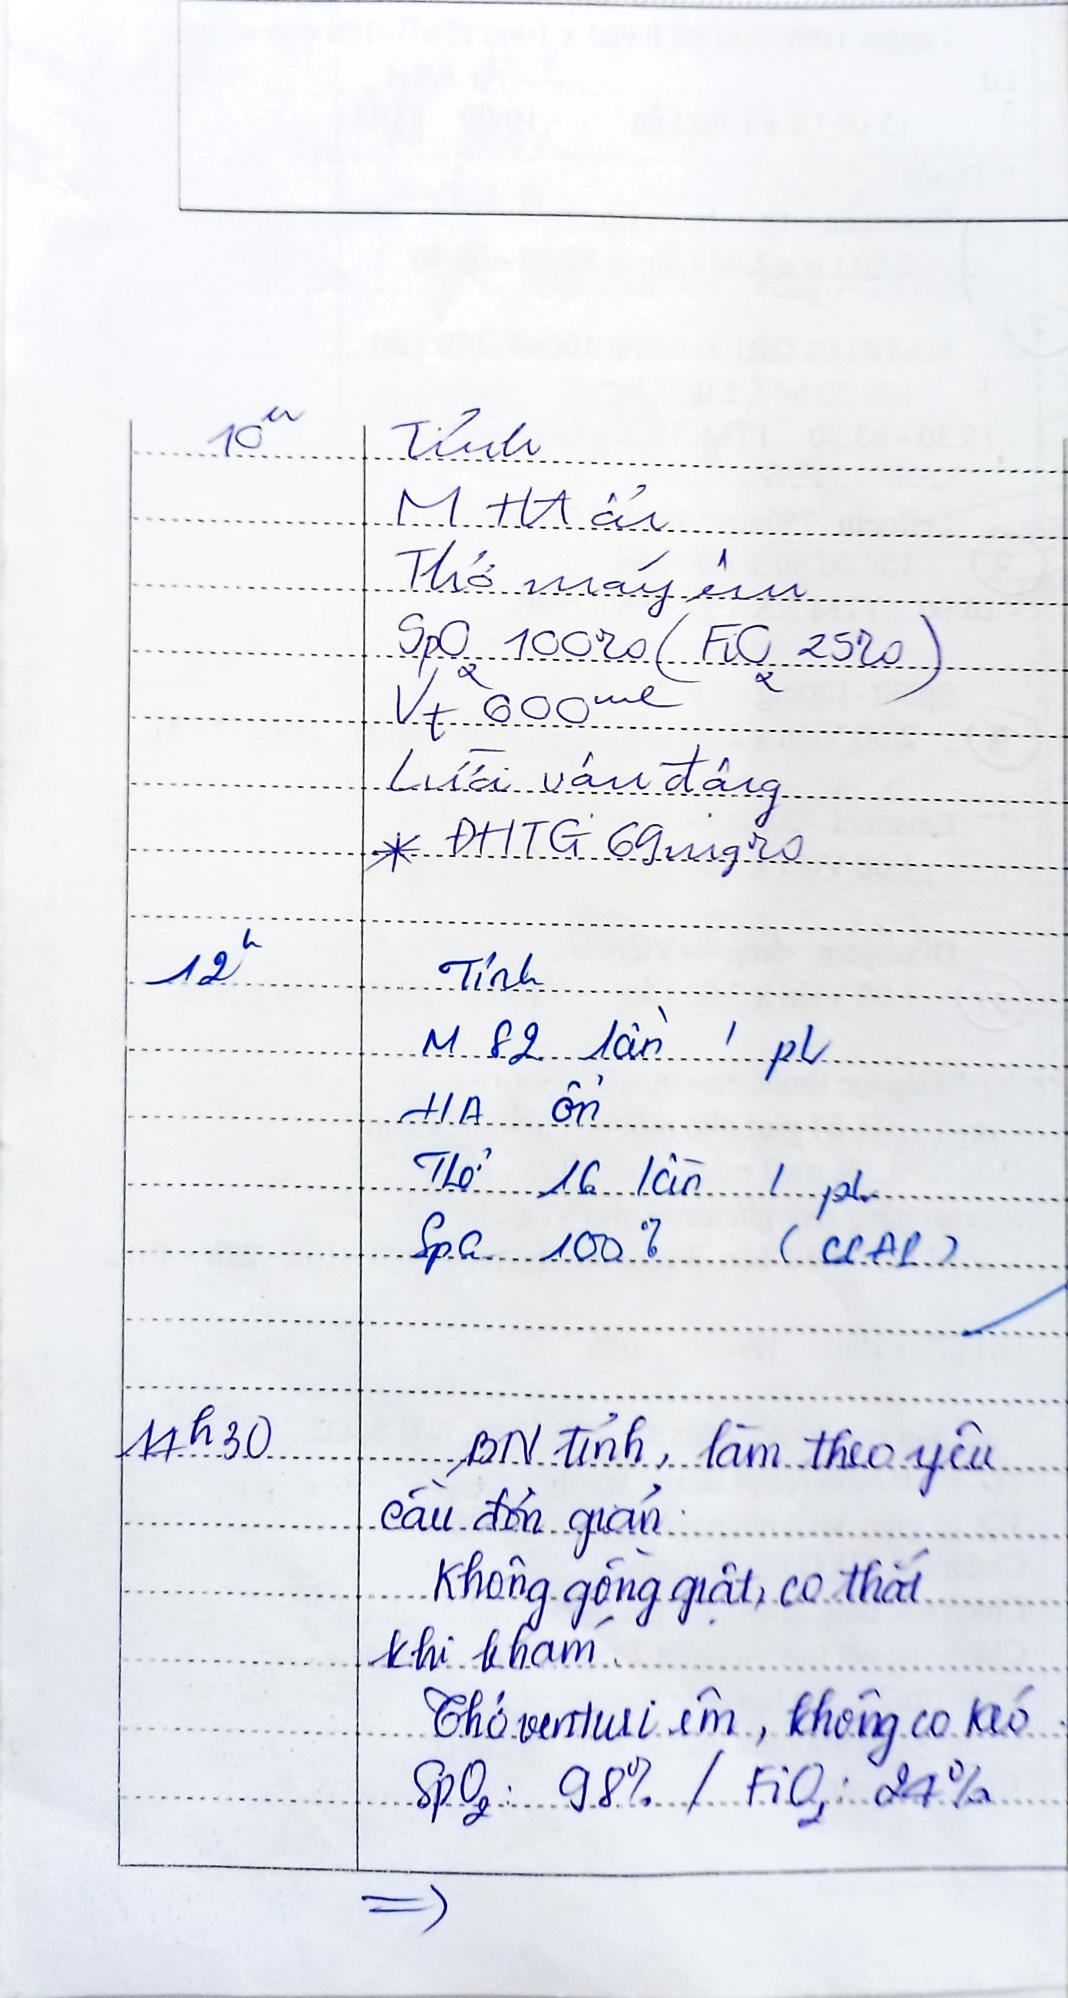 10h Tỉnh
M HA ổn
Thở máy êm
SpO2 100% (FiO2 25%)
Vt 600ml
Lưỡi vẫn đặng
* ĐHTG 69mg%
12h Tỉnh
M 82 lần / ph
HA ổn
Thở 16 lần / ph
SpO2 100%
17h30 BN tỉnh, làm theo yêu
cầu đơn giản
Không gồng giật, co thắt
khi khám.
Thở venturi êm, không co kéo
SpO2: 98% / FiO2: 24%
=>